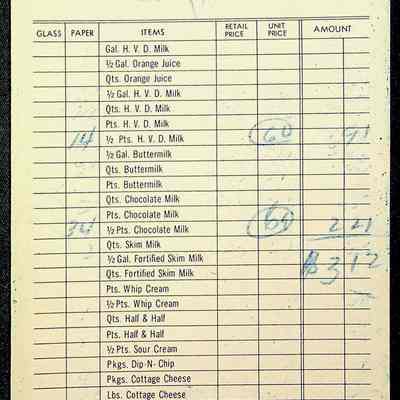 GLASS PAPER ITEMS RETAIL PRICE UNIT PRICE AMOUNT
Gal. H. V. D. Milk
½ Gal. Orange Juice
Qts. Orange Juice
½ Gal. H. V. D. Milk
Qts. H. V. D. Milk
Pts. H. V. D. Milk
14 ½ Pts. H. V. D. Milk 91
½ Gal. Buttermilk
Qts. Buttermilk
Pts. Buttermilk
Qts. Chocolate Milk
Pts. Chocolate Milk
34 ½ Pts. Chocolate Milk 2 21
Qts. Skim Milk
½ Gal. Fortified Skim Milk $3 12
Qts. Fortified Skim Milk
Pts. Whip Cream
½ Pts. Whip Cream
Qts. Half & Half
Pts. Half & Half
½ Pts. Sour Cream
Pkgs. Dip-N-Chip
Pkgs. Cottage Cheese
Lbs. Cottage Cheese